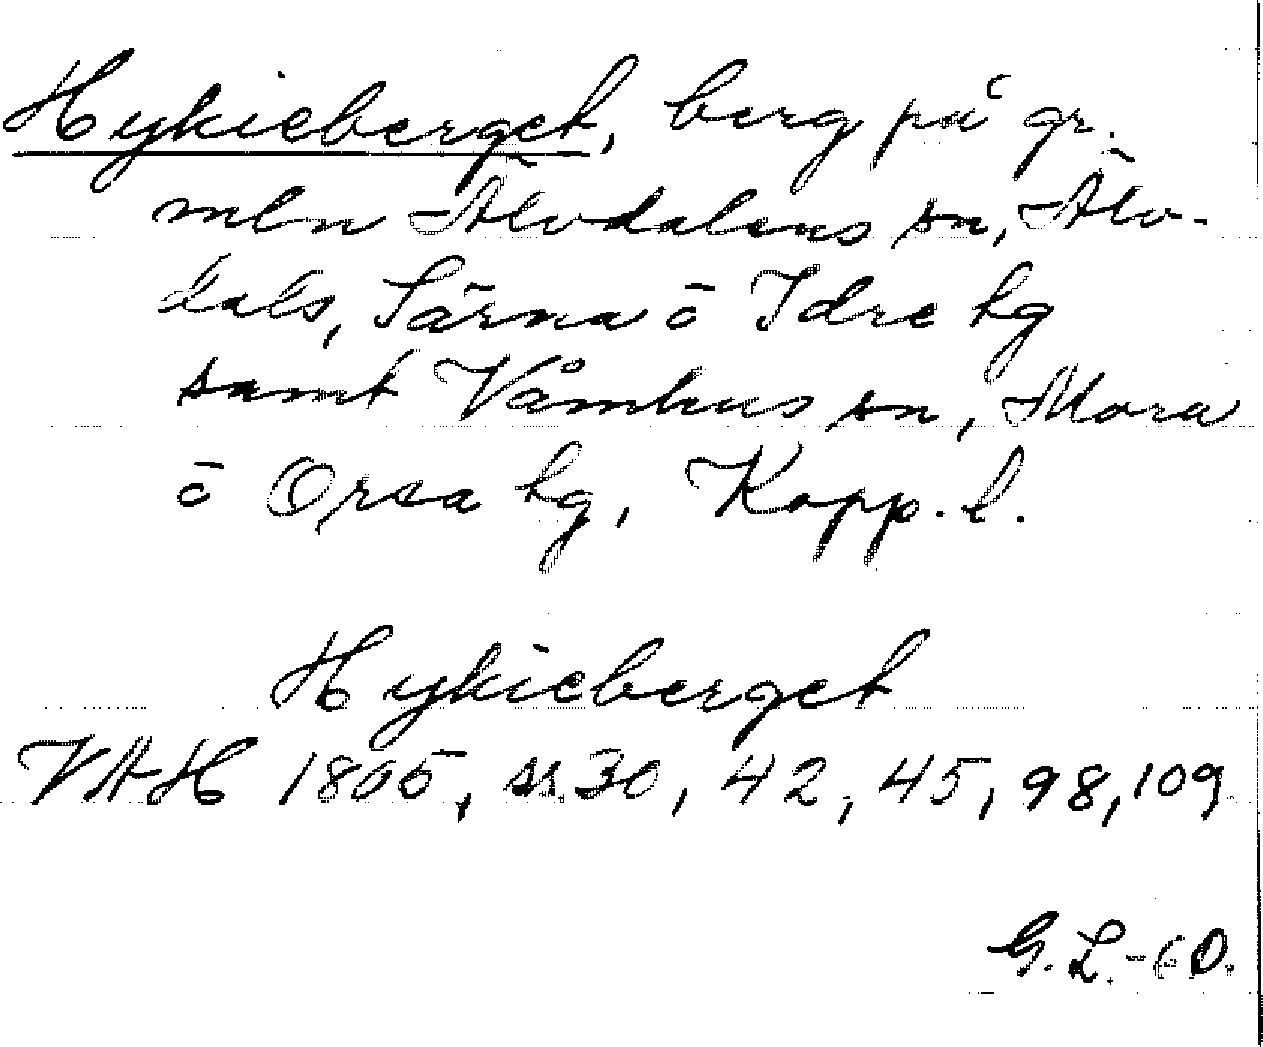 Hykieberget, berg på gr.
mln Älvdalens sn, Älv-
dals, Särna ō Idre tg
samt Våmhus sn, Mora
ō Orsa tg, Kopp. l.
Hykieberget
VAH 1805, ss. 30, 42, 45, 98, 109
G. L.-